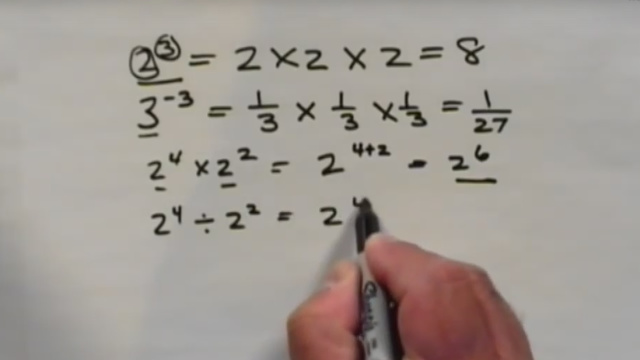 2³ = 2 × 2 × 2 = 8
3⁻³ = 1/3 × 1/3 × 1/3 = 1/27
2⁴ × 2² = 2⁴⁺² = 2⁶
2⁴ ÷ 2² = 2⁴
Sharpie